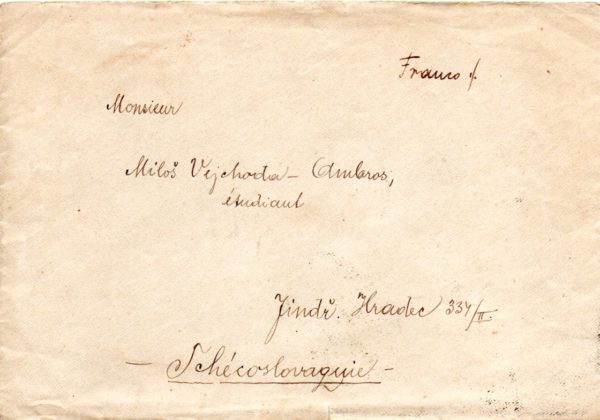 Franco /.
Monsieur
Miloš Vejchoda - Ambros,
étudiant
Jindř. Hradec 334/II.
- Tchécoslovaquie -